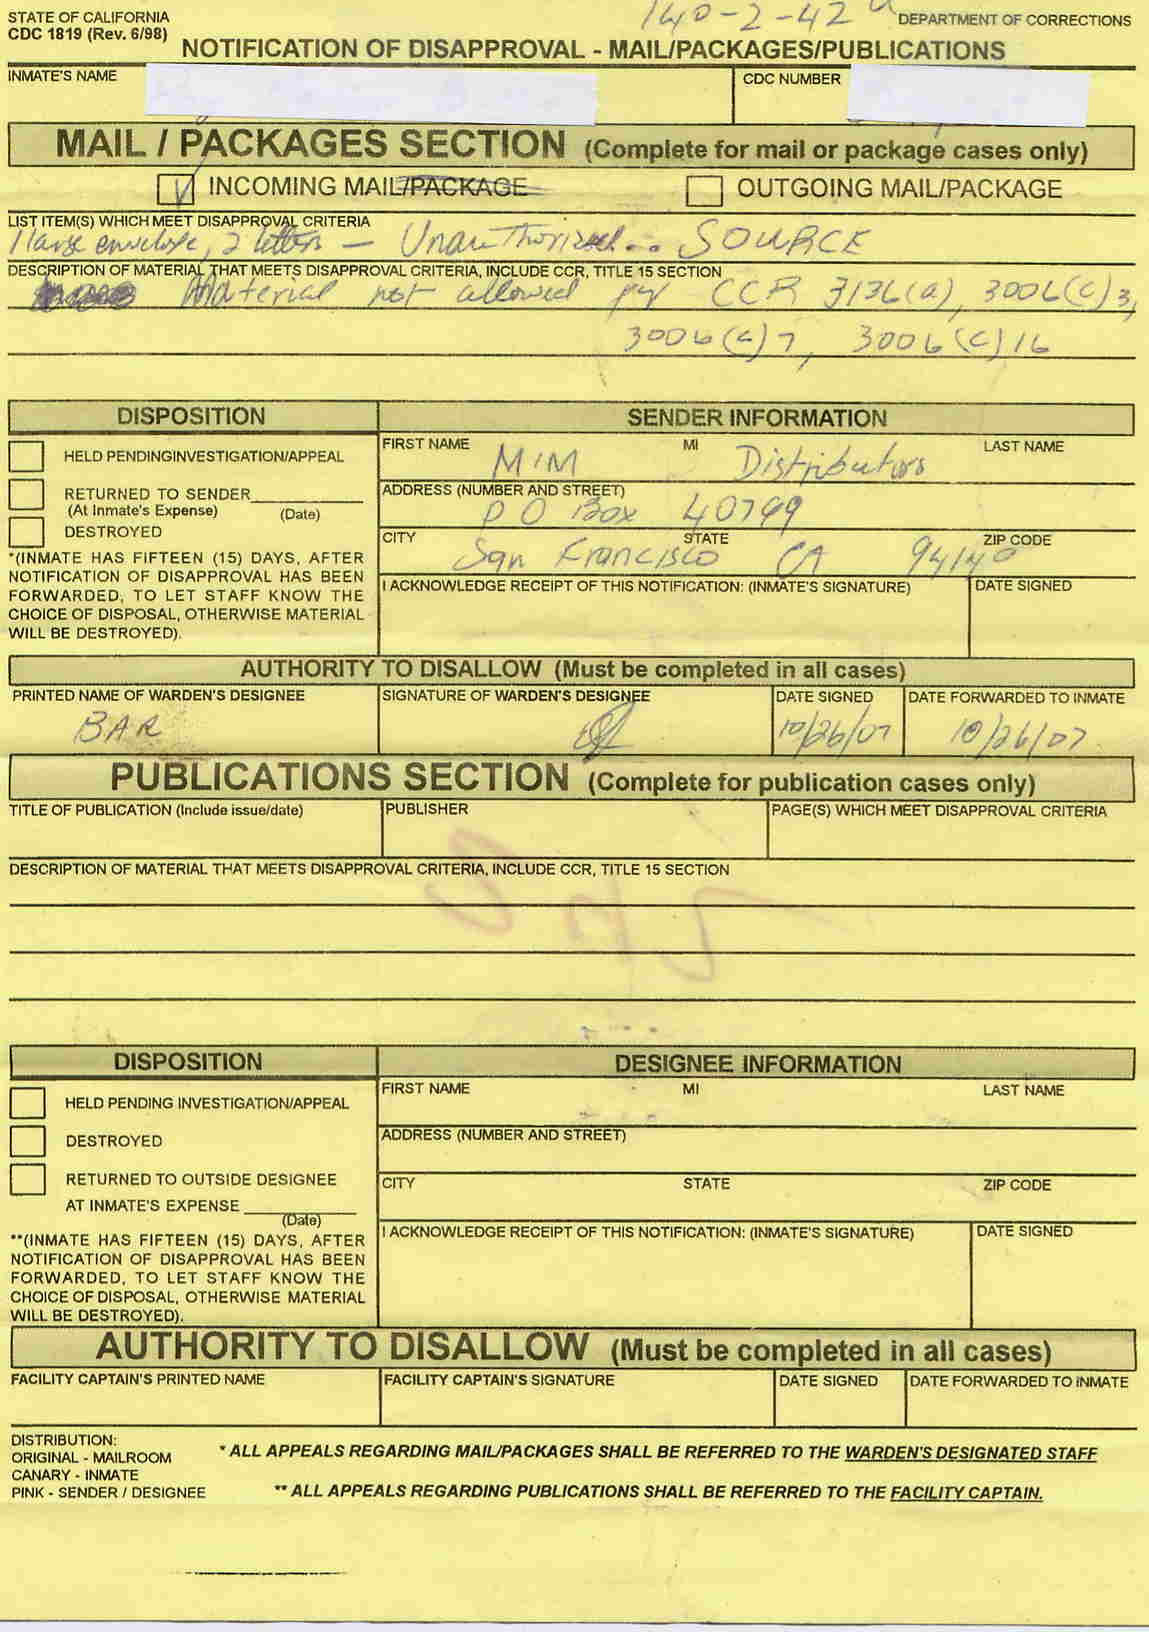 STATE OF CALIFORNIA 140-2-42 DEPARTMENT OF CORRECTIONS
CDC 1819 (Rev. 6/98)
NOTIFICATION OF DISAPPROVAL - MAIL/PACKAGES/PUBLICATIONS
INMATE'S NAME CDC NUMBER
MAIL / PACKAGES SECTION (Complete for mail or package cases only)
INCOMING MAIL/PACKAGE OUTGOING MAIL/PACKAGE
LIST ITEM(S) WHICH MEET DISAPPROVAL CRITERIA
1 large envelope, 2 letters - Unauthorized... SOURCE
DESCRIPTION OF MATERIAL THAT MEETS DISAPPROVAL CRITERIA, INCLUDE CCR, TITLE 15 SECTION
Material not allowed per CCR 3136(a), 3006(c)3,
3006(c)7, 3006(c)16
DISPOSITION SENDER INFORMATION
FIRST NAME MI LAST NAME
HELD PENDINGINVESTIGATION/APPEAL MIM Distributors
RETURNED TO SENDER ADDRESS (NUMBER AND STREET)
(At Inmate's Expense) (Date) PO Box 40799
DESTROYED CITY STATE ZIP CODE
San Francisco CA 94140
*(INMATE HAS FIFTEEN (15) DAYS, AFTER
NOTIFICATION OF DISAPPROVAL HAS BEEN
FORWARDED, TO LET STAFF KNOW THE
CHOICE OF DISPOSAL, OTHERWISE MATERIAL
WILL BE DESTROYED).
I ACKNOWLEDGE RECEIPT OF THIS NOTIFICATION: (INMATE'S SIGNATURE) DATE SIGNED
AUTHORITY TO DISALLOW (Must be completed in all cases)
PRINTED NAME OF WARDEN'S DESIGNEE SIGNATURE OF WARDEN'S DESIGNEE DATE SIGNED DATE FORWARDED TO INMATE
BAR 10/26/07 10/26/07
PUBLICATIONS SECTION (Complete for publication cases only)
TITLE OF PUBLICATION (Include issue/date) PUBLISHER PAGE(S) WHICH MEET DISAPPROVAL CRITERIA
DESCRIPTION OF MATERIAL THAT MEETS DISAPPROVAL CRITERIA, INCLUDE CCR, TITLE 15 SECTION
DISPOSITION DESIGNEE INFORMATION
FIRST NAME MI LAST NAME
HELD PENDING INVESTIGATION/APPEAL
DESTROYED ADDRESS (NUMBER AND STREET)
RETURNED TO OUTSIDE DESIGNEE CITY STATE ZIP CODE
AT INMATE'S EXPENSE
(Date)
I ACKNOWLEDGE RECEIPT OF THIS NOTIFICATION: (INMATE'S SIGNATURE) DATE SIGNED
**(INMATE HAS FIFTEEN (15) DAYS, AFTER
NOTIFICATION OF DISAPPROVAL HAS BEEN
FORWARDED, TO LET STAFF KNOW THE
CHOICE OF DISPOSAL, OTHERWISE MATERIAL
WILL BE DESTROYED).
AUTHORITY TO DISALLOW (Must be completed in all cases)
FACILITY CAPTAIN'S PRINTED NAME FACILITY CAPTAIN'S SIGNATURE DATE SIGNED DATE FORWARDED TO INMATE
DISTRIBUTION:
ORIGINAL - MAILROOM
CANARY - INMATE
PINK - SENDER / DESIGNEE
* ALL APPEALS REGARDING MAIL/PACKAGES SHALL BE REFERRED TO THE WARDEN'S DESIGNATED STAFF
** ALL APPEALS REGARDING PUBLICATIONS SHALL BE REFERRED TO THE FACILITY CAPTAIN.